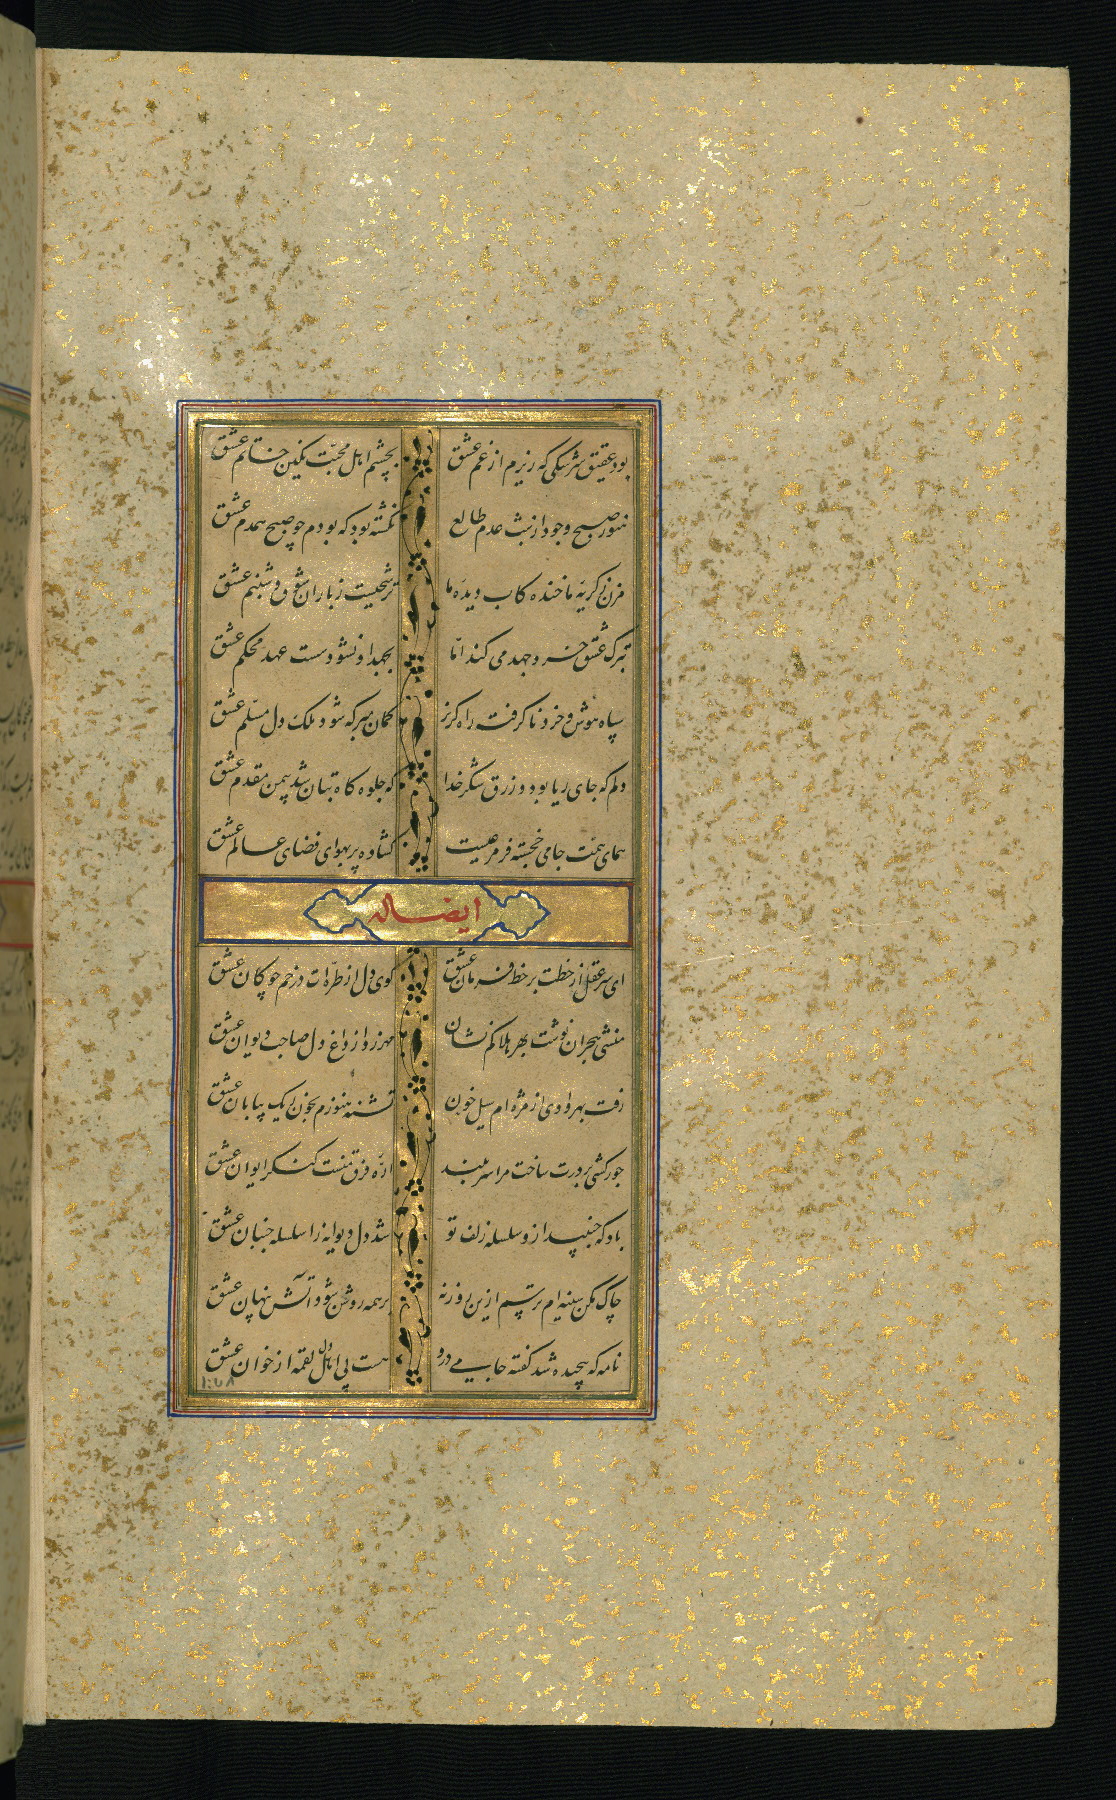 بود عقیق سرشکی که ریزم از غم عشق بچشم اهل محبت نکین خاتم عشق
ننور صبح وجود از شب عدم طالع نکشته بود که بودم چو صبح همدم عشق
مزن بکریه ما خنده کاب دیده ما ترشحیست ز باران شوق و شبنم عشق
بترک عشق خرد جهد می کند اما بجهد او نشود سست عهد محکم عشق
سپاه هوش و خرد نا کرفته راه کریز کمان مبر که شود ملک دل مسلم عشق
دلم که جای ریا بود و زرق شکر خدا که جلوه کاه بتان شد بیمن مقدم عشق
همای همت جامی خجسته فر مرغیست کشاده پر بهوای فضای عالم عشق
ایضاله
ای سر عقل از خطت بر خط فرمان عشق کوی دل از طره ات در خم چوکان عشق
منشی هجران نوشت بهر هلاکم نشان مهر زد از داغ دل صاحب دیوان عشق
رفت بهر وادی از مژه ام سیل خون تشنه هنوزم بخون ریک بیابان عشق
جور کشی بر درت ساخت مرا سربلند ازه فرق منست کنکر ایوان عشق
باد که جنبید ازو سلسله زلف تو شد دل دیوانه را سلسله جنبان عشق
چاک مکن سینه ام ترسم ازین روزنه بر همه روشن شود آتش پنهان عشق
نامه که پیچیده شد کفته جامی درو هست پی اهل دل لقمه از خوان عشق